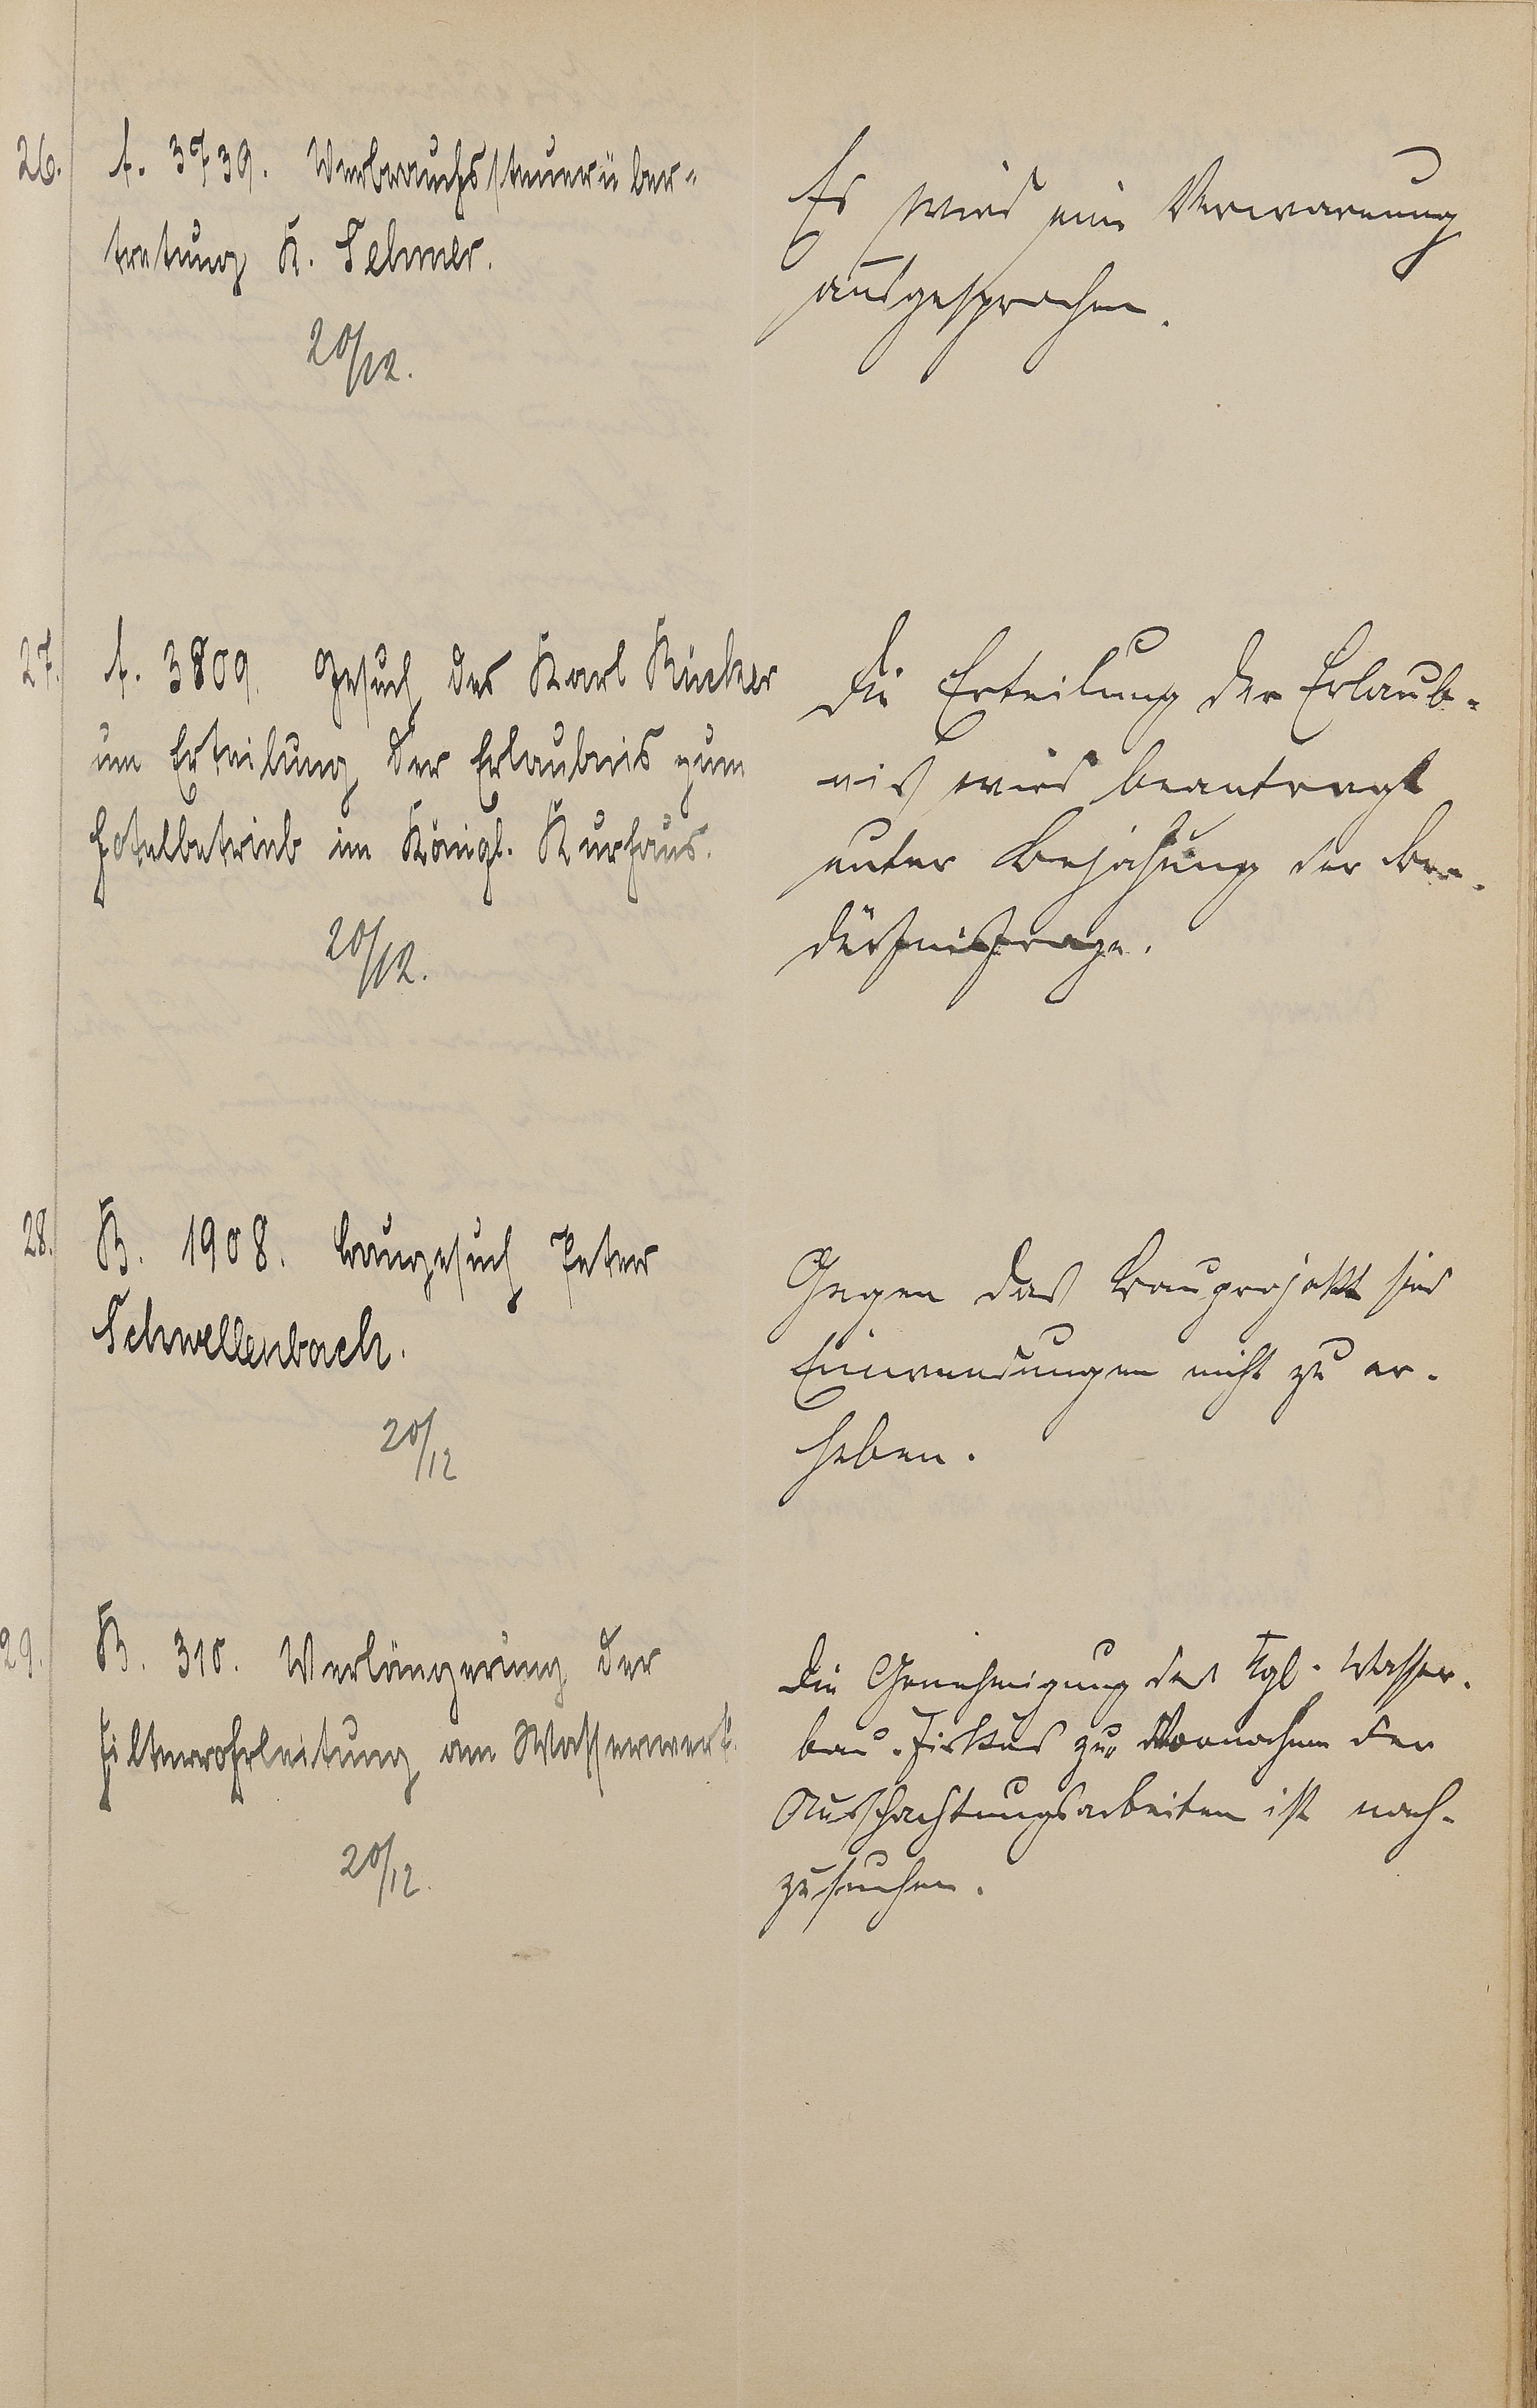 26.
A. 3739. Verbrauchssteuerüber-
tretung K. Sehmer.
20/12.
Es wird eine Verwarnung
ausgesprochen.
27.
A. 3809. Gesuch des Karl Rücker
um Erteilung der Erlaubnis zum
Hotelbetrieb im Königl. Kurhaus.
20/12.
Die Erteilung der Erlaub-
nis wird beantragt
unter Bejahung der Be-
dürfnisfrage.
28.
B. 1908. Baugesuch Peter
Schwellenbach.
20/12
Gegen das Bauprojekt sind
Einwendungen nicht zu er-
heben.
29.
B. 310. Verlängerung der
Filterrohrleitung am Wasserwerk.
20/12.
Die Genehmigung des Kgl. Wasser-
bau-Fiskus zur Vornahme der
Ausschachtungsarbeiten ist nach-
zusuchen.